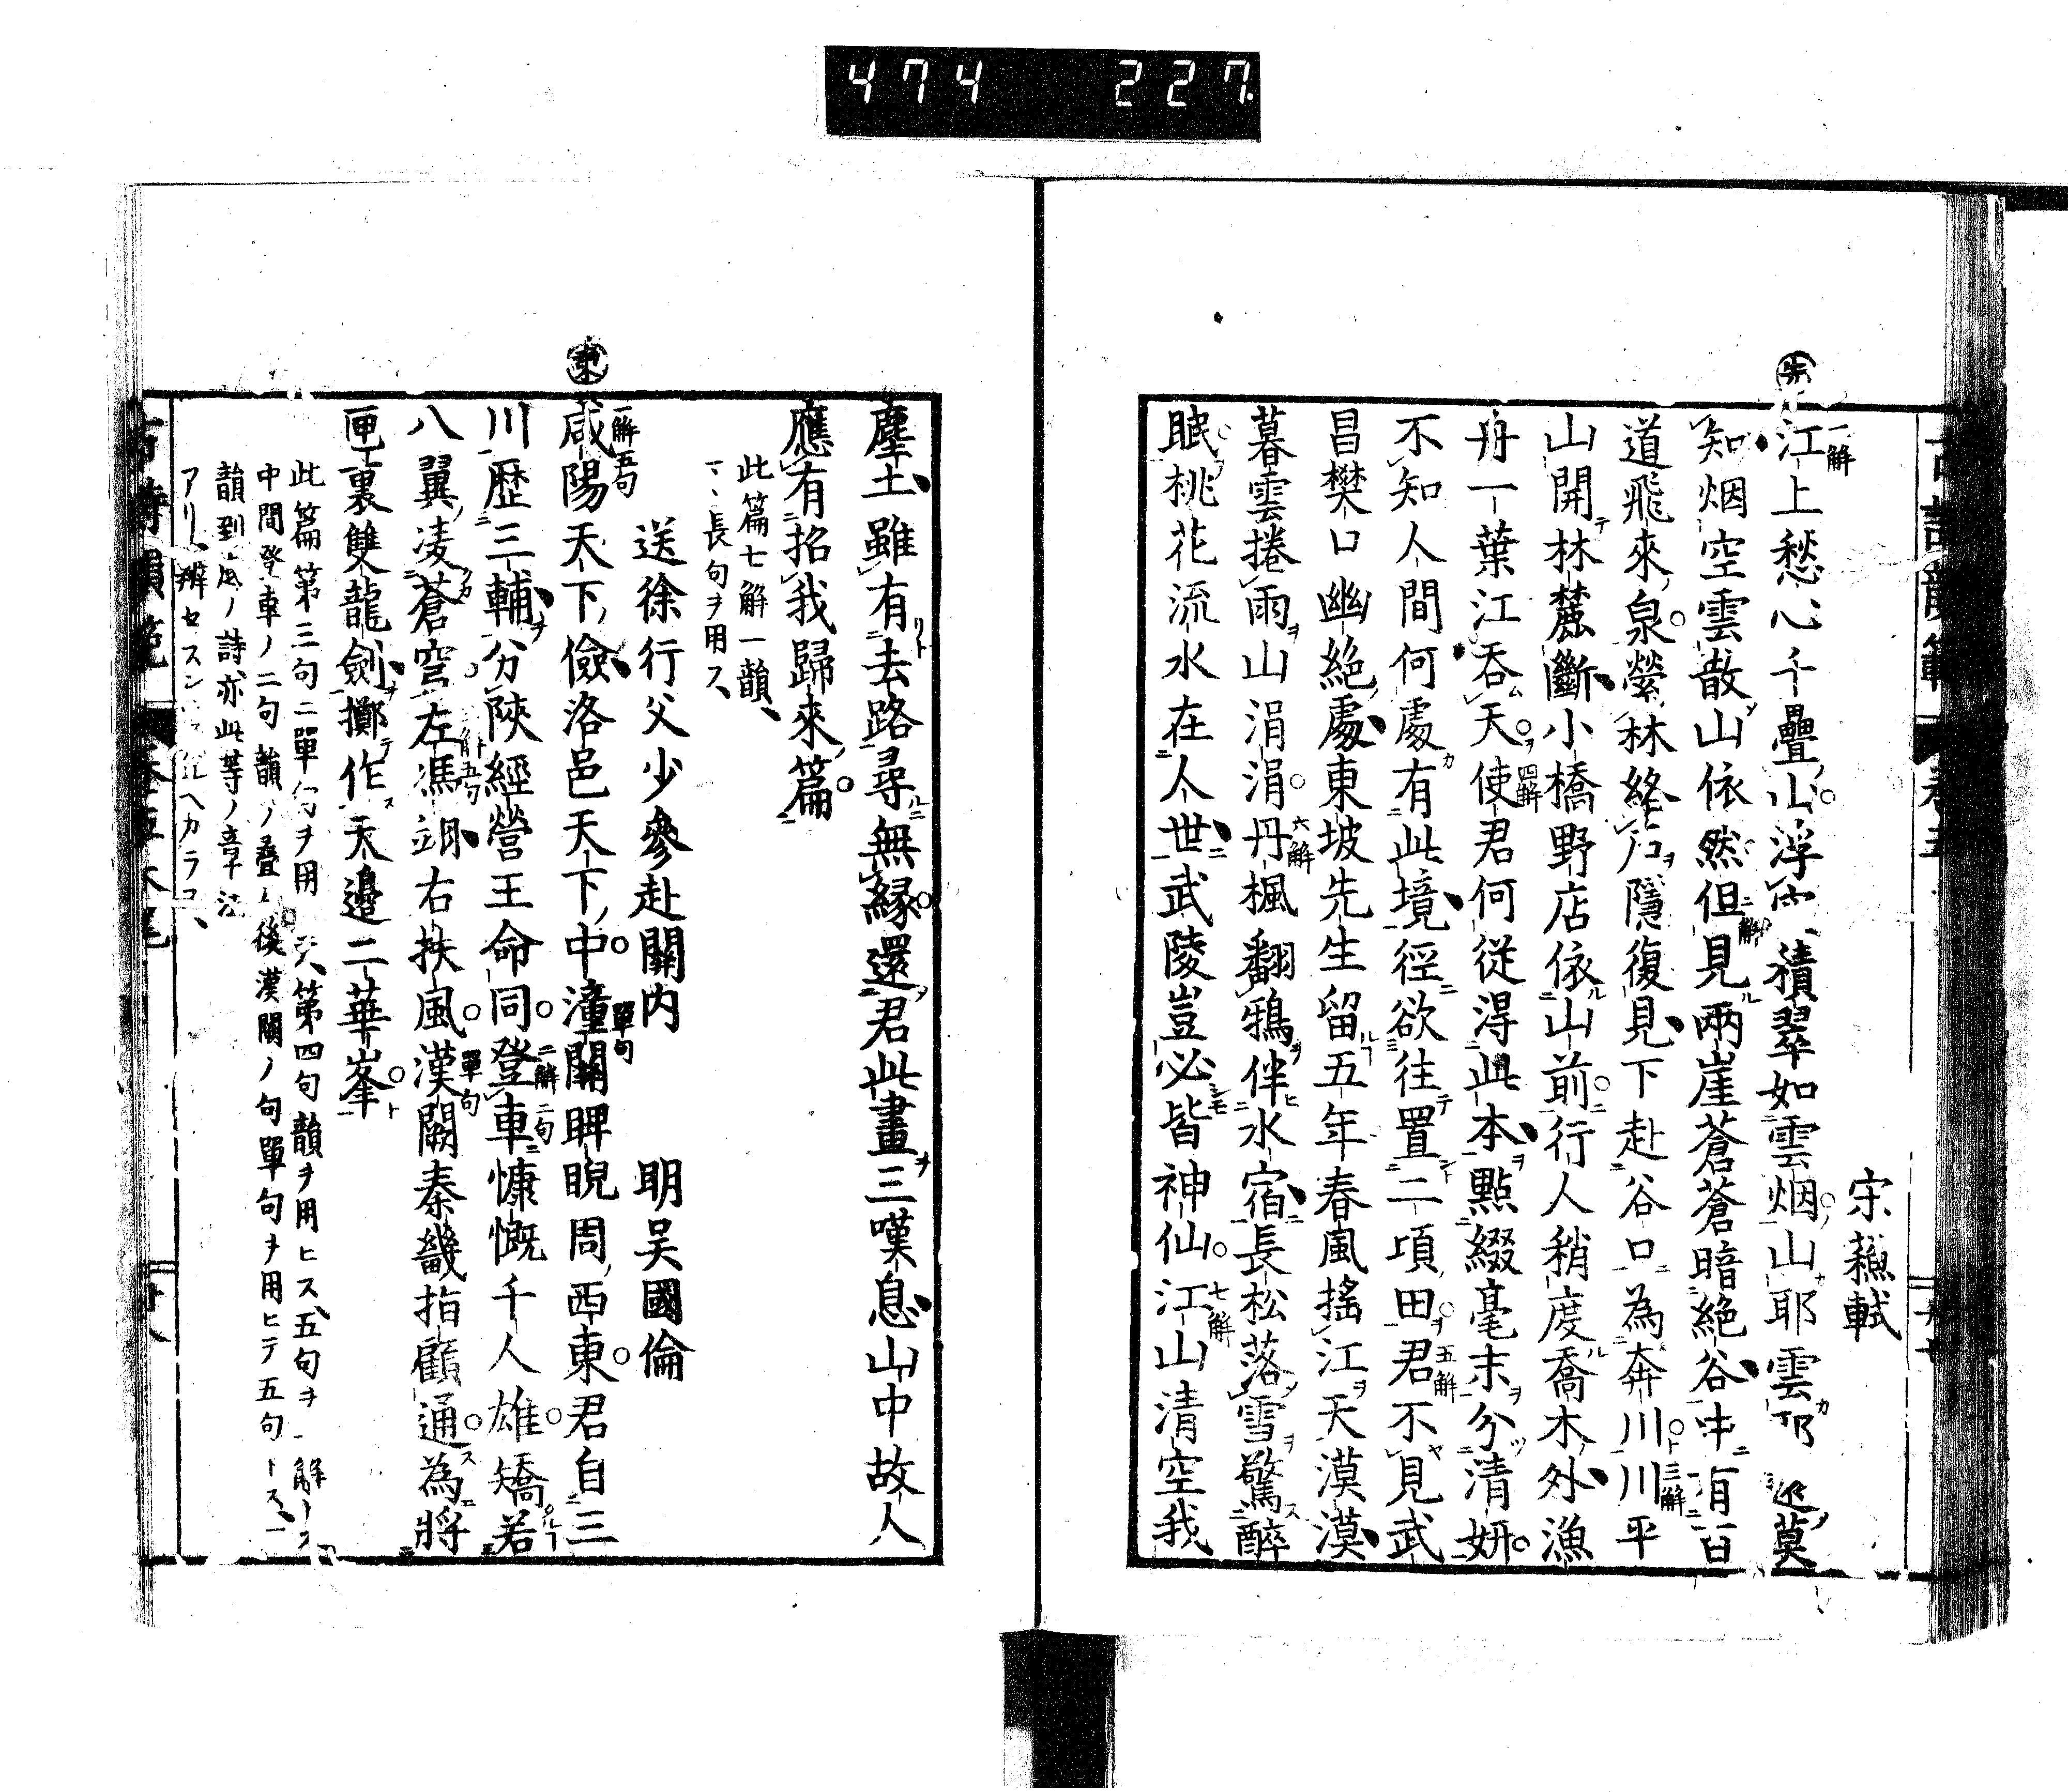 474 227
宋蘓軾
先
江上愁心千疊山浮空積翠如雲烟山耶雲耶遠莫
知烟空雲散山依然但見兩崖蒼蒼暗絶谷中有百
道飛來泉縈林絡石隱復見下赴谷口為奔川川平
山開林麓斷小橋野店依山前行人稍度喬木外漁
舟一葉江吞天使君何從淂此本點綴毫末分清妍
不知人間何處有此境徑欲往置二項田君不見武
昌樊口幽絶處東坡先生留五年春風搖江天漠漠
暮雲捲雨山涓涓丹楓翻鴉伴水宿長松落雪驚醉
眠桃花流水在人世武陵豈必皆神仙江山清空我
塵土雖有去路尋無縁還君此畫三嘆息山中故人
應有招我歸來篇
此篇七解一韻、
長句ヲ用ス、
送徐行父少參赴關内 明吳國倫
東
咸陽天下儉洛邑天下中潼關睥睨周西東君自三
川歷三輔分陝經營王命同登車慷慨千人雄矯若
八翼凌蒼穹左馮翊右扶風漢闕秦畿指顧通為將
匣裏雙龍劍擲作天邉二華峯
此篇第三句ニ單句ヲ用 第四句韻ヲ用ヒス五句ヲ一解トス
中間登車ノ二句韻ヲ疊ム後漢闕ノ句單句ヲ用ヒテ五句トス一
韻到底ノ詩亦此等ノ章法
アリ辨セスンハアルヘカラス、